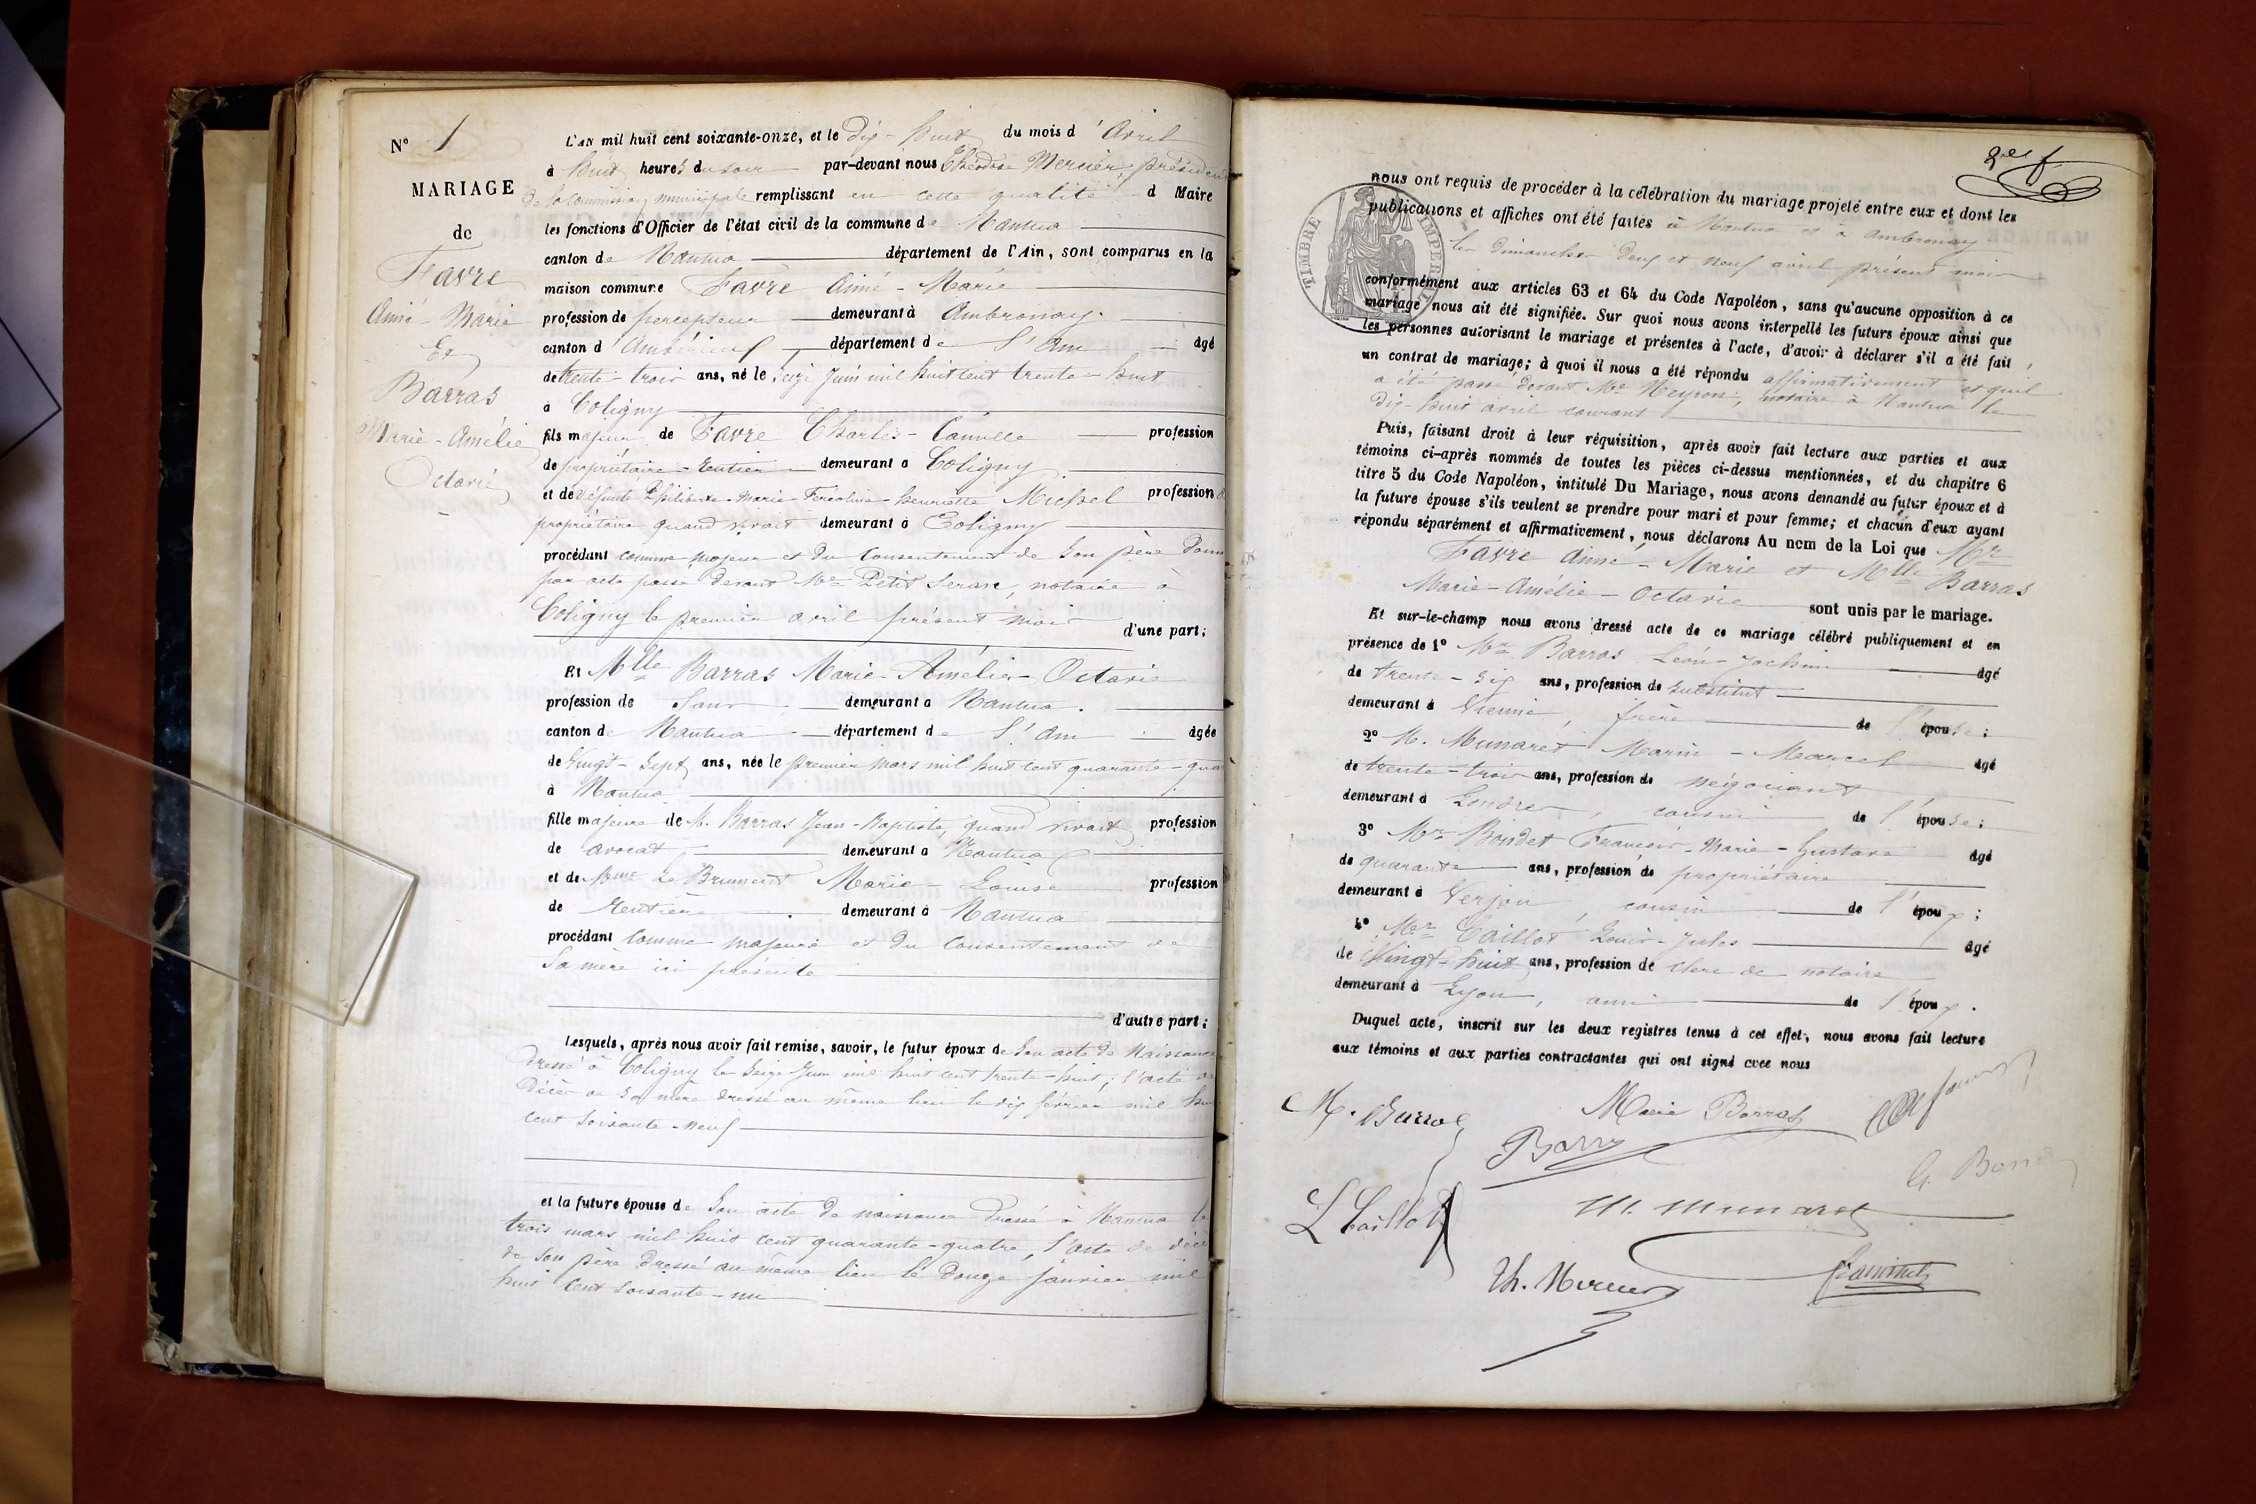 N° 1
MARIAGE
de
Favre
Aimé-Marie
Et
Barras
Marie-Amélie
Octavie
L'AN mil huit cent soixante-onze, et le dix-huit du mois d'Avril
à huit heures du soir par-devant nous Théodore Mercier, président
de la commission municipale remplissant en cette qualité d Maire
les fonctions d'Officier de l'état civil de la commune de Nantua
canton de Nantua département de l'Ain, sont comparus en la
maison commune Favre Aimé-Marie
profession de percepteur demeurant à Ambronay.
canton d'Ambérieux département de l'Ain âgé
de trente-trois ans, né le seize Juin mil huit cent trente-huit
à Coligny
fils majeur de Favre Charles-Camille profession
de propriétaire-rentier demeurant à Coligny
et de défunte Philiberte-Marie- -henriette Michel profession
propriétaire quand vivait demeurant à Coligny
procédant comme majeur et du consentement de son père donné
par acte passé devant Me Petit , notaire à
Coligny le premier avril présent mois
d'une part;
Et Mlle Barras Marie-Amélie-Octavie
profession de Sans demeurant à Nantua.
canton de Nantua département de l'Ain âgée
de vingt-sept ans, née le premier mars mil huit cent quarante-qua
à Nantua
fille majeure de M. Barras Jean-Baptiste, quand vivait profession
de avocat, demeurant à Nantua
et de Mme Le Brument Marie-Louise profession
de Rentière demeurant à Nantua
procédant comme majeure et du consentement de
sa mère ici présente
d'autre part;
Lesquels, après nous avoir fait remise, savoir, le futur époux de son acte de naissance
dressé à Coligny le seize Juin mil huit cent trente-huit; l'acte de
décès de sa mère dressé au même lieu le dix février mil hu
cent soixante-neuf
et la future épouse de son acte de naissance dressé à Nantua le
trois mars mil huit cent quarante-quatre, l'acte de décè
de son père dressé au même lieu le douze janvier mil
huit cent soixante-un
2e f.
TIMBRE IMPERIAL
nous ont requis de procéder à la célébration du mariage projeté entre eux et dont les
publications et affiches ont été faites à Nantua et à Ambronay
les dimanches deux et neuf avril présent mois
conformément aux articles 63 et 64 du Code Napoléon, sans qu'aucune opposition à ce
mariage nous ait été signifiée. Sur quoi nous avons interpellé les futurs époux ainsi que
les personnes autorisant le mariage et présentes à l'acte, d'avoir à déclarer s'il a été fait
un contrat de mariage; à quoi il nous a été répondu affirmativement et qu'il
a été passé devant Me Neyron, notaire à Nantua le
dix-huit avril courant
Puis, faisant droit à leur réquisition, après avoir fait lecture aux parties et aux
témoins ci-après nommés de toutes les pièces ci-dessus mentionnées, et du chapitre 6
titre 5 du Code Napoléon, intitulé Du Mariage, nous avons demandé au futur époux et à
la future épouse s'ils veulent se prendre pour mari et pour femme; et chacun d'eux ayant
répondu séparément et affirmativement, nous déclarons Au nom de la Loi que Mr
Favre Aimé-Marie et Mlle Barras
Marie-Amélie-Octavie sont unis par le mariage.
Et sur-le-champ nous avons dressé acte de ce mariage célébré publiquement et en
présence de 1° Mr Barras Léon-Jochim âgé
de trente-six ans, profession de substitut
demeurant à Vienne, frère de l'épouse;
2° M. Munaret Marin-Marcel âgé
de trente-trois ans, profession de négociant
demeurant à Londres, cousin de l'épouse;
3° Mr Bondet François-Marie-Gustave âgé
de quarante ans, profession de propriétaire
demeurant à Verjon, cousin de l'époux;
4° Mr Caillot Louis-Jules âgé
de vingt-huit ans, profession de clerc de notaire
demeurant à Lyon, ami de l'époux.
Duquel acte, inscrit sur les deux registres tenus à cet effet, nous avons fait lecture
aux témoins et aux parties contractantes qui ont signé avec nous
M. Barras
Marie Barras
Barras
G. Bon
L Caillot
M. Munaret
Th. Mercier